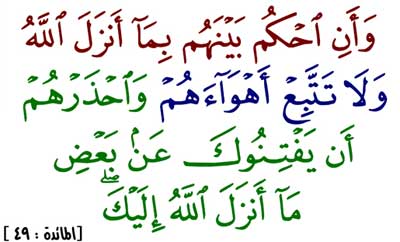 وَأَنِ ٱحۡكُم بَيۡنَهُم بِمَآ أَنزَلَ ٱللَّهُ
وَلَا تَتَّبِعۡ أَهۡوَآءَهُمۡ وَٱحۡذَرۡهُمۡ
أَن يَفۡتِنُوكَ عَنۢ بَعۡضِ
مَآ أَنزَلَ ٱللَّهُ إِلَيۡكَۖ
[المائدة : ٤٩ ]